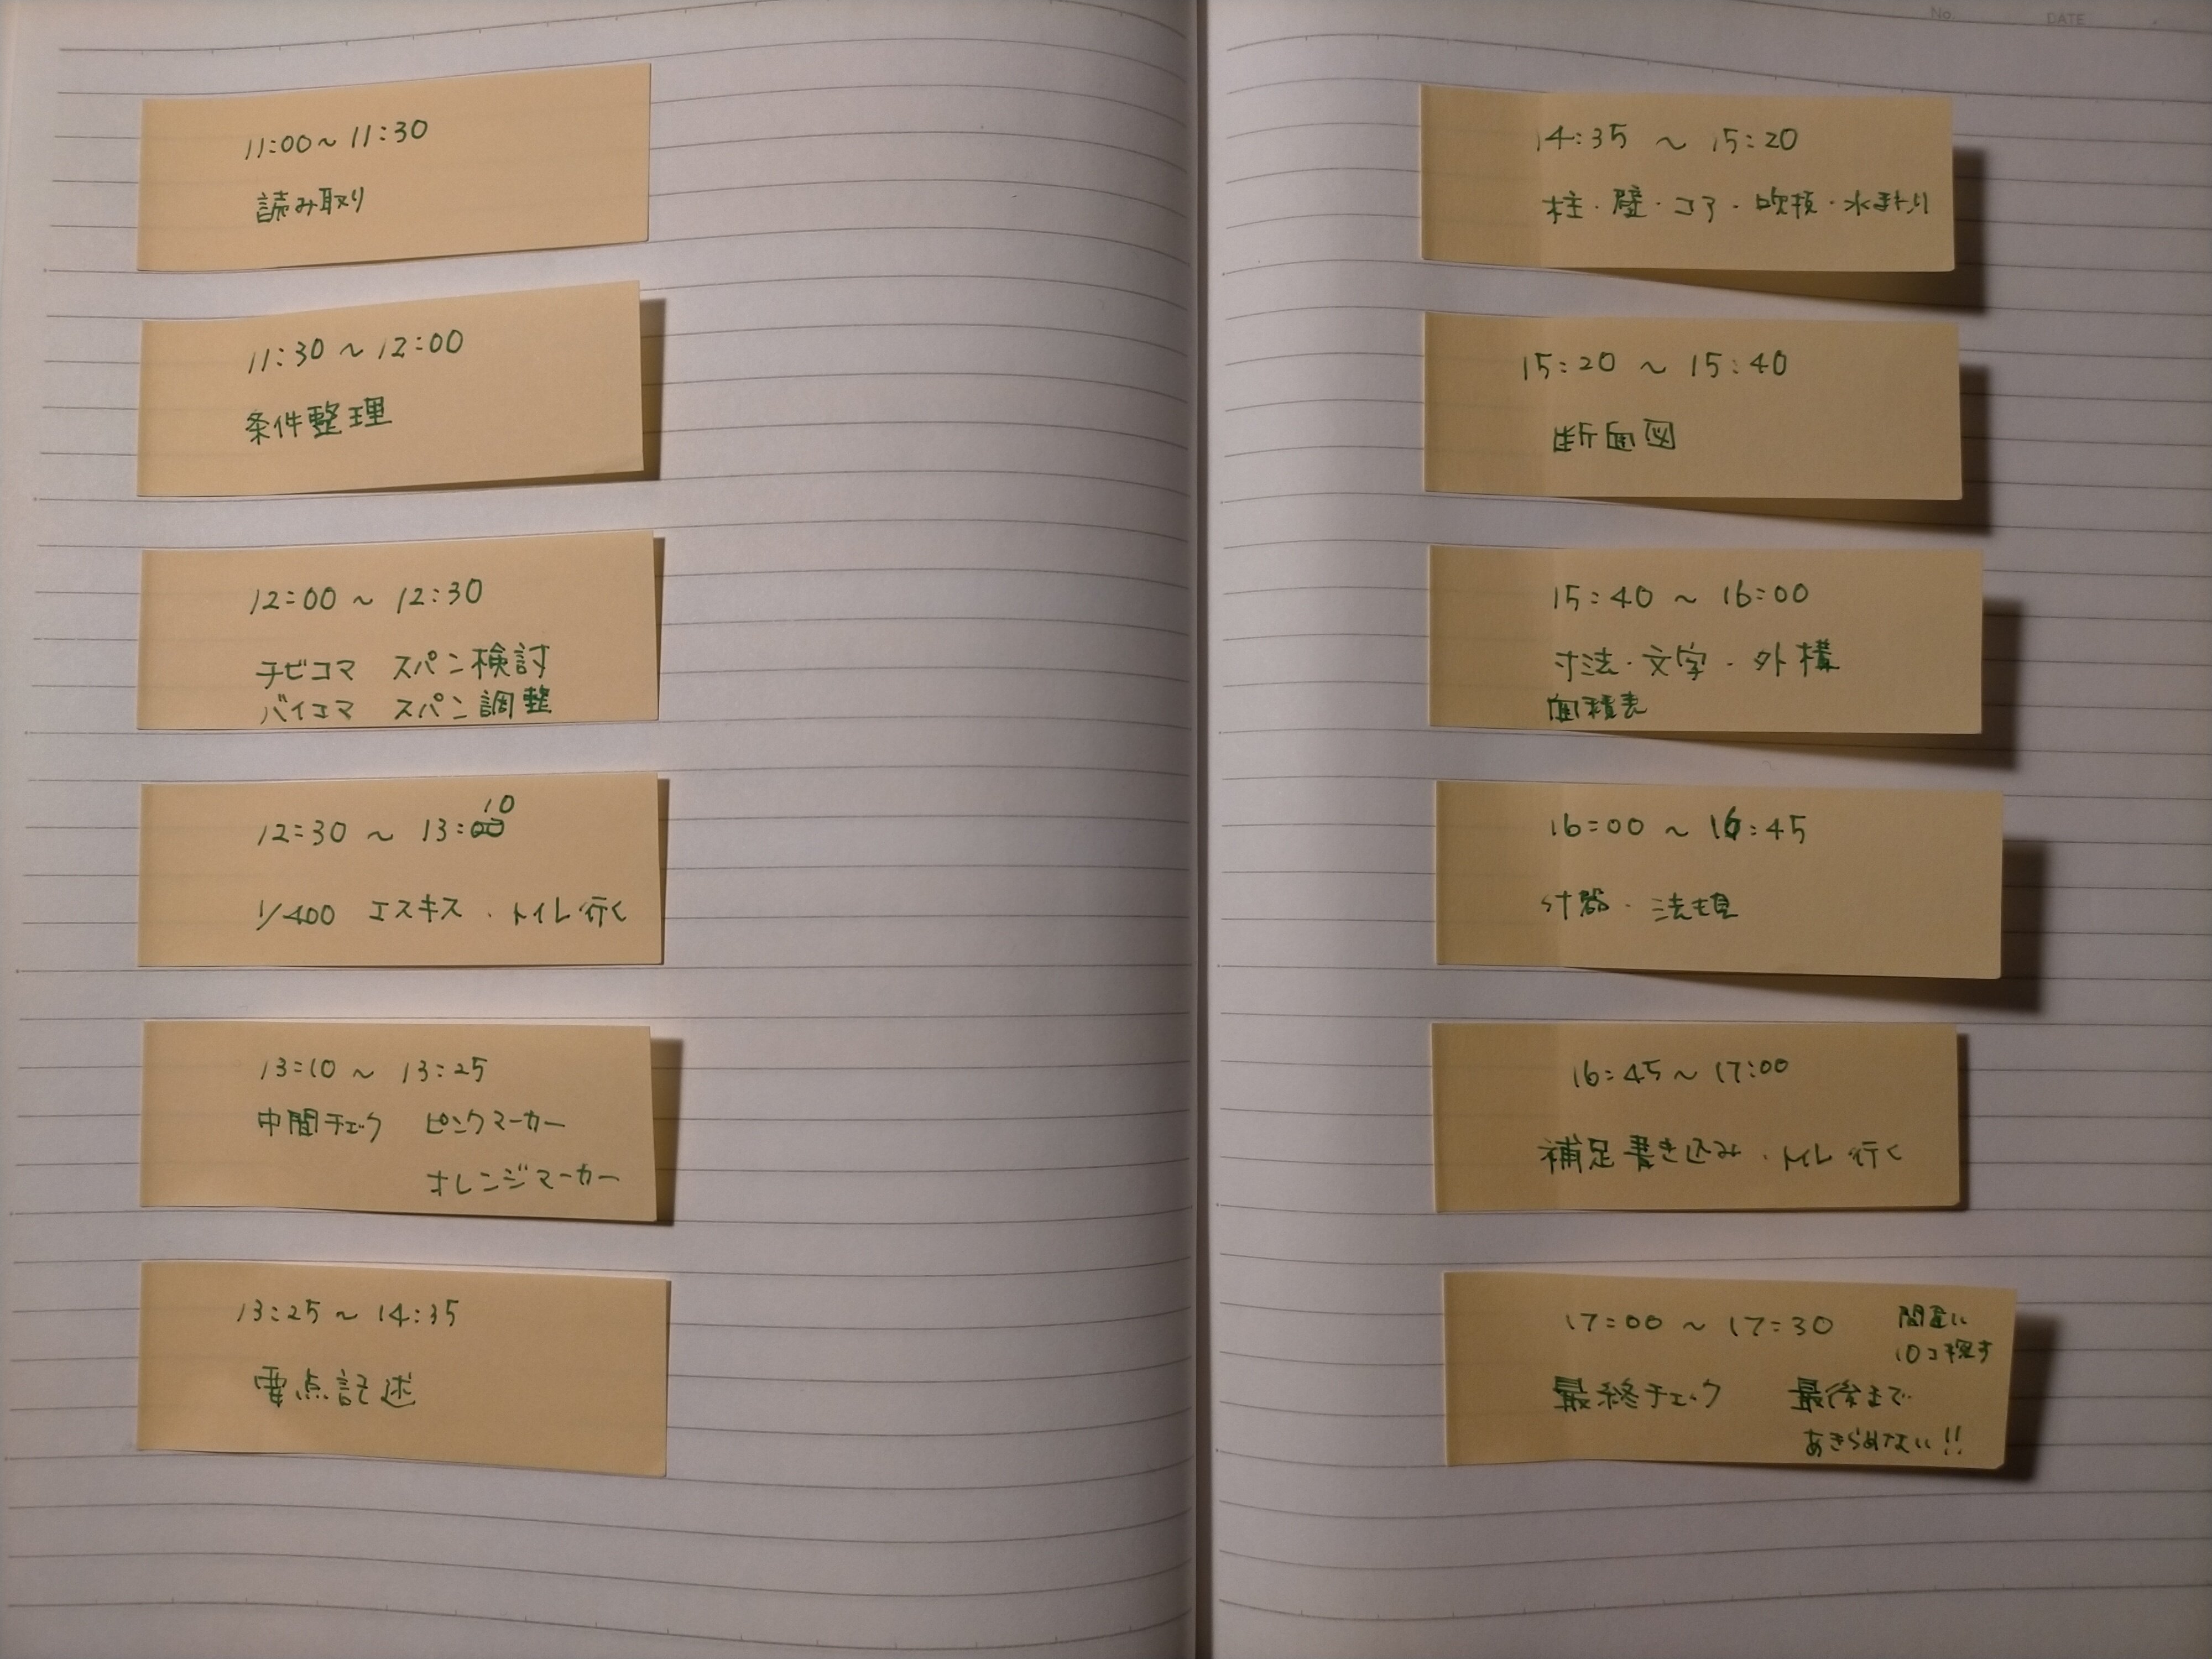 11:00～11:30
読み取り
11:30～12:00
条件整理
12:00～12:30
チビコマ スパン検討
バイコマ スパン調整
12:30～13:10
1/400 エスキス・トイレ行く
13:10～13:25
中間チェック ピンクマーカー
オレンジマーカー
13:25～14:35
要点記述
No.
DATE
14:35～15:20
柱・壁・コア・吹抜・水まわり
15:20～15:40
断面図
15:40～16:00
寸法・文字・外構
面積表
16:00～16:45
什器・法規
16:45～17:00
補足書き込み・トイレ行く
17:00～17:30
間違い
10コ探す
最終チェック 最後まで
あきらめない!!